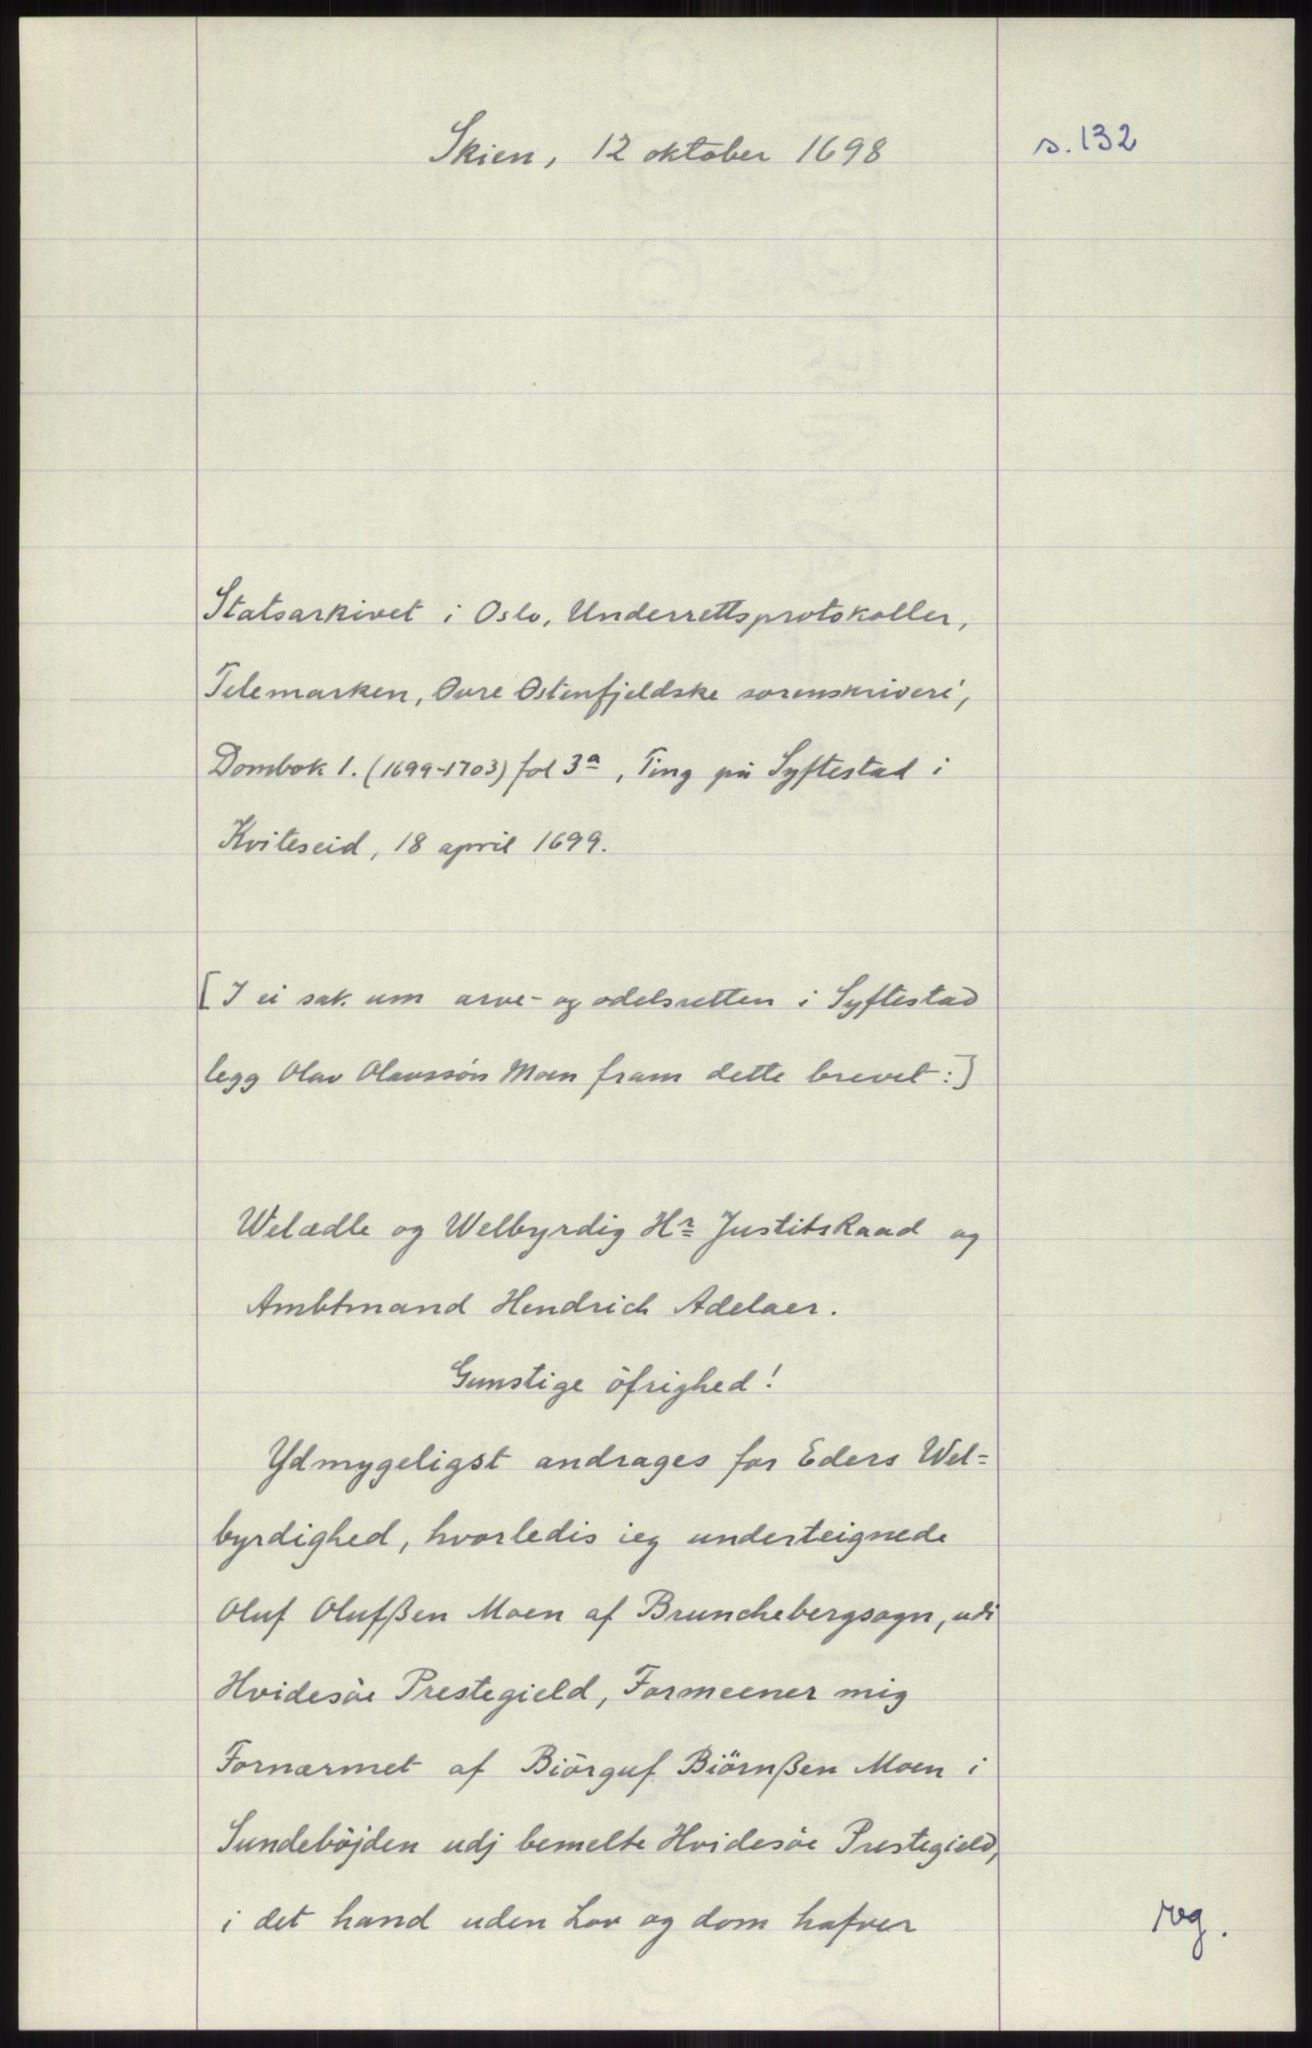 Skien, 12 oktober 1698
s. 132
Statsarkivet i Oslo, Underrettsprotokoller,
Telemarken, Øvre Østenfjeldske sorenskriveri,
Dombok 1. (1699-1703) fol 3a, Ting på Syftestad i
Kviteseid, 18 april 1699.
[I ei sak um arve- og odelsretten i Syftestad
legg Olav Olavssön Moen fram dette brevet:]
Welædle og Welbyrdig Hr Justitsraad og
Ambtmand Hendrich Adelaer.
Gunstige öfrighed!
Ydmygeligst andrages for Eders Wel=
byrdighed, hvorledis ieg underteignede
Oluf Olufßen Moen af Brunchebergsogn, udi
Hvidesöe Prestegield, Formeener mig
Fornærmet af Biörguf Biörnßen Moen i
Sundeböjden udj bemelte Hvidesöe Prestegield,
i det hand uden Lov og dom hafver
reg.